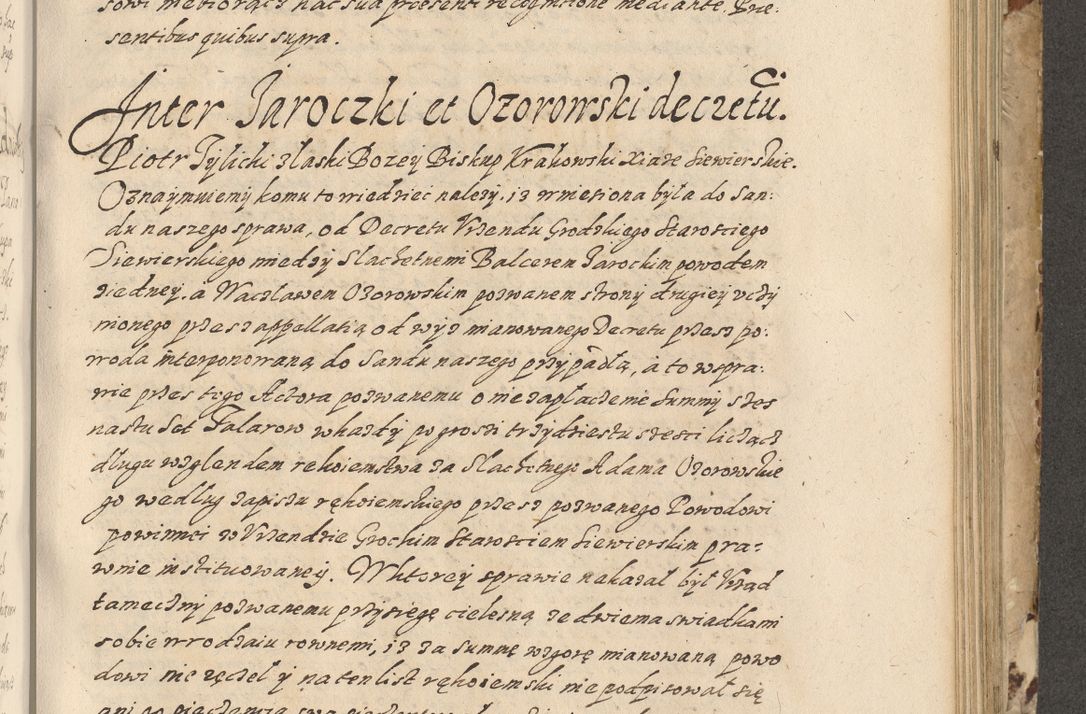 sentibus quibus supra.
Inter Jaroczki et Ozorowski decretū.
Piotr Tylicki z łaski Bozey Biskup Krakowski Xiąże Siewierskie.
Oznaymuiemy komu to wiedziec nalezy. iż wniesiona była do San:
du naszego sprawa, od Decretu Vrzendu Grodzkiego Starosciego
Siewierskiego miedzy Slachetnemi Balcerem Jarockim powodem
ziedney. a Wacławem Ozorowskim pozwanem strony drugiey vczy
nionego przesz appellatią od wyż mianowanego Decretu przesz po:
woda interponowaną do Sandu naszego przypadła, a to wspra:
wie przes tego Aktora pozwanemu o niezapłaczenie Summy szes
nastu Set Talarow w każdy po groszi trzydziestu szesci licząc
długu względem rekoiemstwa za Slachetnego Adama Ozorowskie
go według zapisu rękoiemskiego przesz pozwanego Powodowi
powinnei w Vrzendzie Grockim Starosciem Siewierskim pra:
wnie instituowaney. W ktorey sprawie nakazał był Vrząd
tameczny pozwanemu przysięgę cielesną ze dwiema swiadkami
sobie w rodzaiu rownemi, iż za summę wzgorę mianowaną powo
dowi nie ręczeł y na ten list rękoiemski nie podpisował się